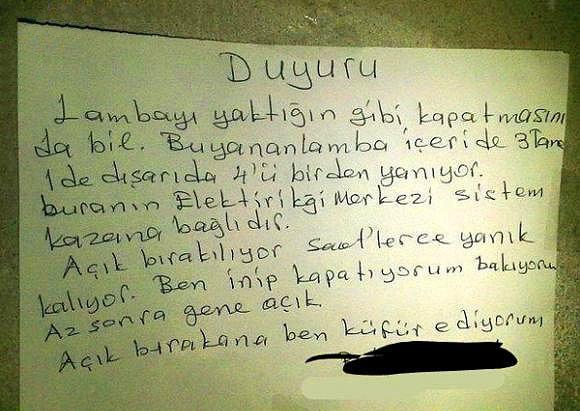 Duyuru
Lambayı yaktığın gibi kapatmasını
da bil. Buyananlamba içeride 3Tane
1 de dışarıda 4'ü birden yanıyor.
buranın Elektirikği Merkezi sistem
kazana bağlıdır.
Açık bırakılıyor saat'lerce yanık
kalıyor. Ben inip kapatıyorum bakıyorum
Az sonra gene açık.
Açık bırakana ben küfür ediyorum